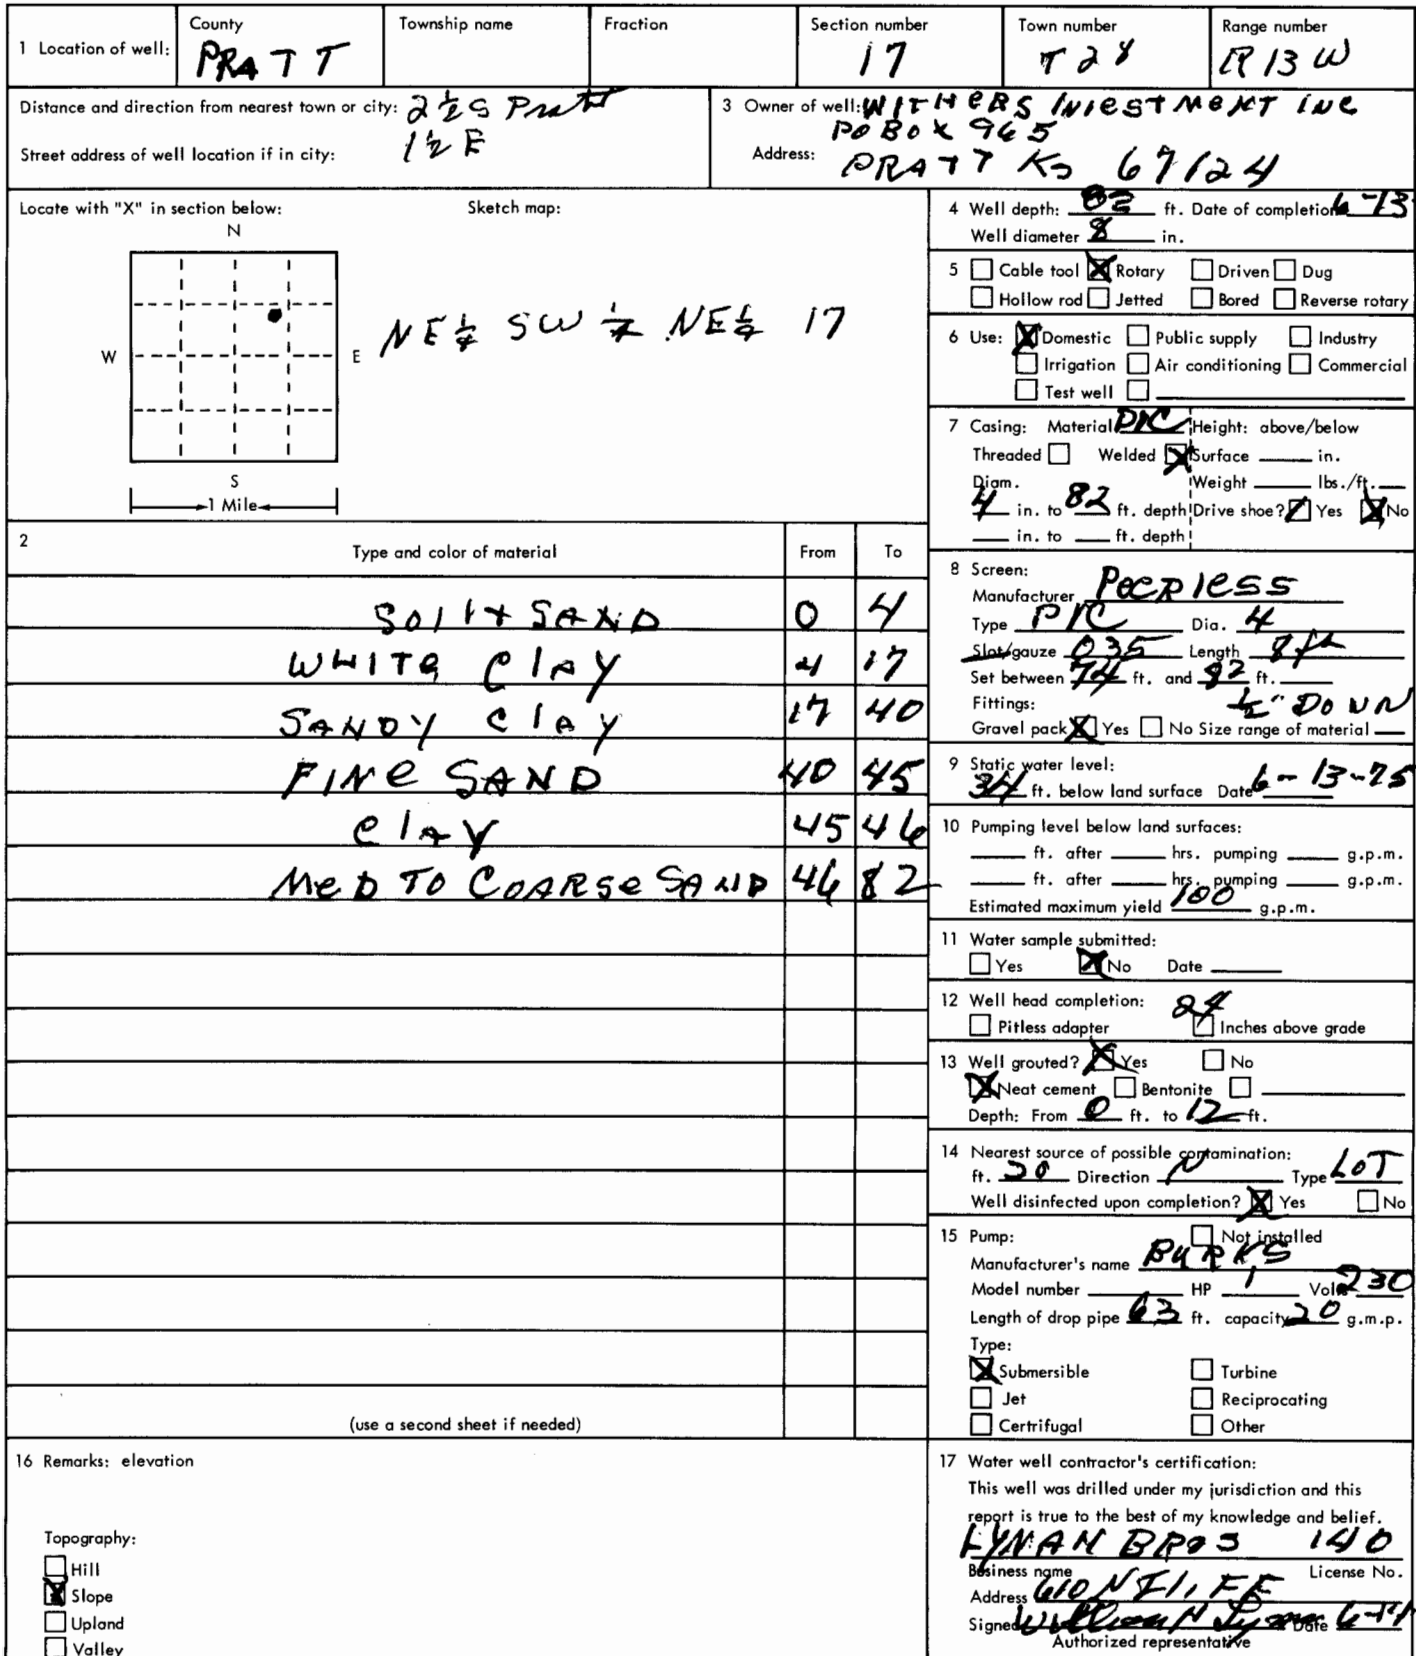 1 Location of well:
County
PRATT
Township name
Fraction
Section number
17
Town number
T 28
Range number
R 13 W
Distance and direction from nearest town or city: 2 ½ S Pratt
1 ½ E
Street address of well location if in city:
3 Owner of well: WITHERS INVESTMENT INC
PO BOX 965
Address: PRATT KS 67124
Locate with "X" in section below:
Sketch map:
N
W
E
S
1 Mile
NE ¼ SW ¼ NE ¼ 17
4 Well depth: 82 ft. Date of completion 6-13
Well diameter 8 in.
5 Cable tool X Rotary Driven Dug
Hollow rod Jetted Bored Reverse rotary
6 Use: X Domestic Public supply Industry
Irrigation Air conditioning Commercial
Test well
7 Casing: Material PVC Height: above/below
Threaded Welded X Surface in.
Diam. Weight lbs./ft.
4 in. to 82 ft. depth Drive shoe? Yes X No
in. to ft. depth
2
Type and color of material From To
SOIL + SAND 0 4
WHITE CLAY 4 17
SANDY CLAY 17 40
FINE SAND 40 45
CLAY 45 46
MED TO COARSE SAND 46 82
(use a second sheet if needed)
8 Screen:
Manufacturer PEERLESS
Type PVC Dia. 4
Slot/gauze 035 Length 8 ft
Set between 74 ft. and 82 ft.
Fittings: ½" DOWN
Gravel pack X Yes No Size range of material
9 Static water level:
34 ft. below land surface Date 6-13-75
10 Pumping level below land surfaces:
ft. after hrs. pumping g.p.m.
ft. after hrs. pumping g.p.m.
Estimated maximum yield 100 g.p.m.
11 Water sample submitted:
Yes X No Date
12 Well head completion: 24
Pitless adapter Inches above grade
13 Well grouted? X Yes No
X Neat cement Bentonite
Depth: From 0 ft. to 12 ft.
14 Nearest source of possible contamination:
ft. 20 Direction N Type LOT
Well disinfected upon completion? X Yes No
15 Pump: Not installed
Manufacturer's name BURKS
Model number HP 1 Volts 230
Length of drop pipe 63 ft. capacity 20 g.m.p.
Type:
X Submersible Turbine
Jet Reciprocating
Certrifugal Other
16 Remarks: elevation
Topography:
Hill
X Slope
Upland
Valley
17 Water well contractor's certification:
This well was drilled under my jurisdiction and this
report is true to the best of my knowledge and belief.
LYNAM BROS 140
Business name License No.
Address 610 N
Signed William N Lynam Date
Authorized representative